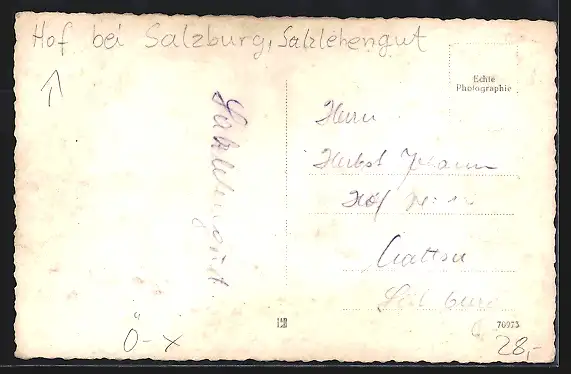 Hof bei Salzburg, Salzlehengut
Echte
Photographie
Salzlehengut
Herrn
Herbst Johann
Hof
Salzburg
70973
Ö-X
28,-